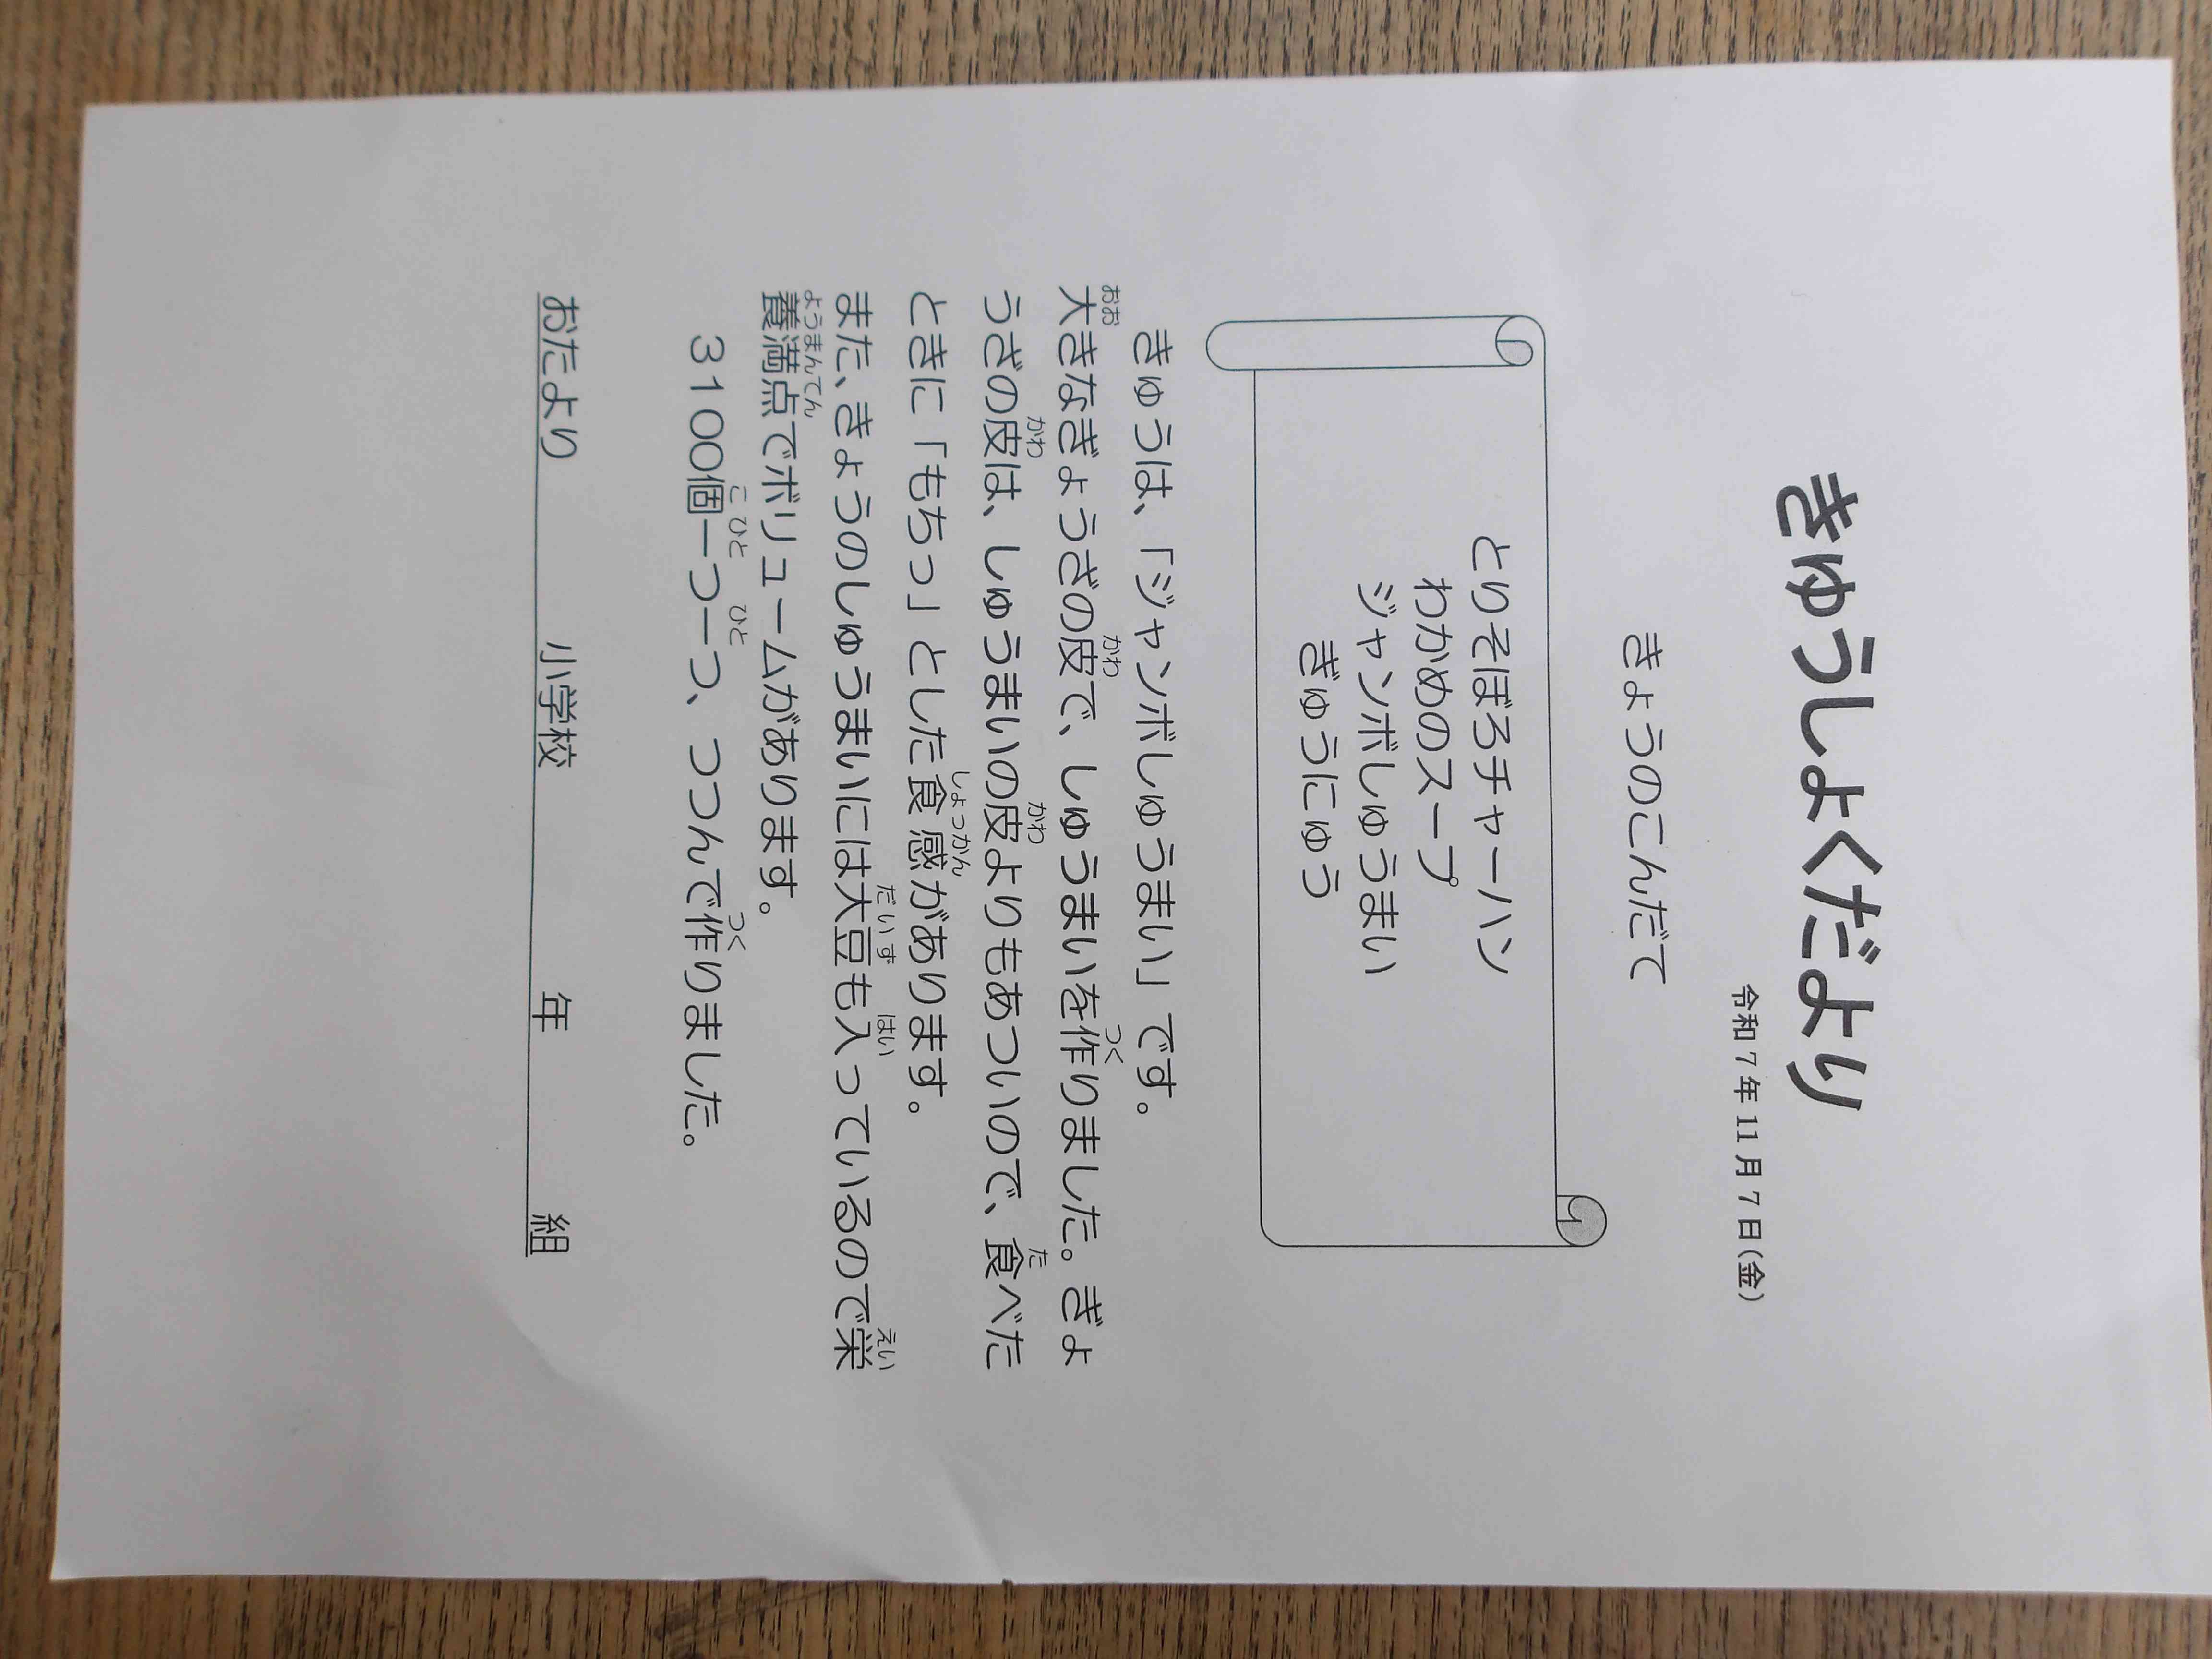 きゅうしょくだより
令和7年11月7日(金)
きょうのこんだて
とりそぼろチャーハン
わかめのスープ
ジャンボしゅうまい
ぎゅうにゅう
きゅうは、「ジャンボしゅうまい」です。
大きなぎょうざの皮で、しゅうまいを作りました。ぎょ
うざの皮は、しゅうまいの皮よりもあついので、食べた
ときに「もちっ」とした食感があります。
また、きょうのしゅうまいには大豆も入っているので栄
養満点でボリュームがあります。
3100個一つ一つ、つつんで作りました。
おたより 小学校 年 組